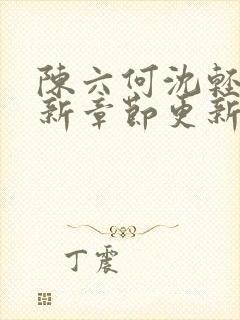 陳六何沈輕
新章節更新
丁震